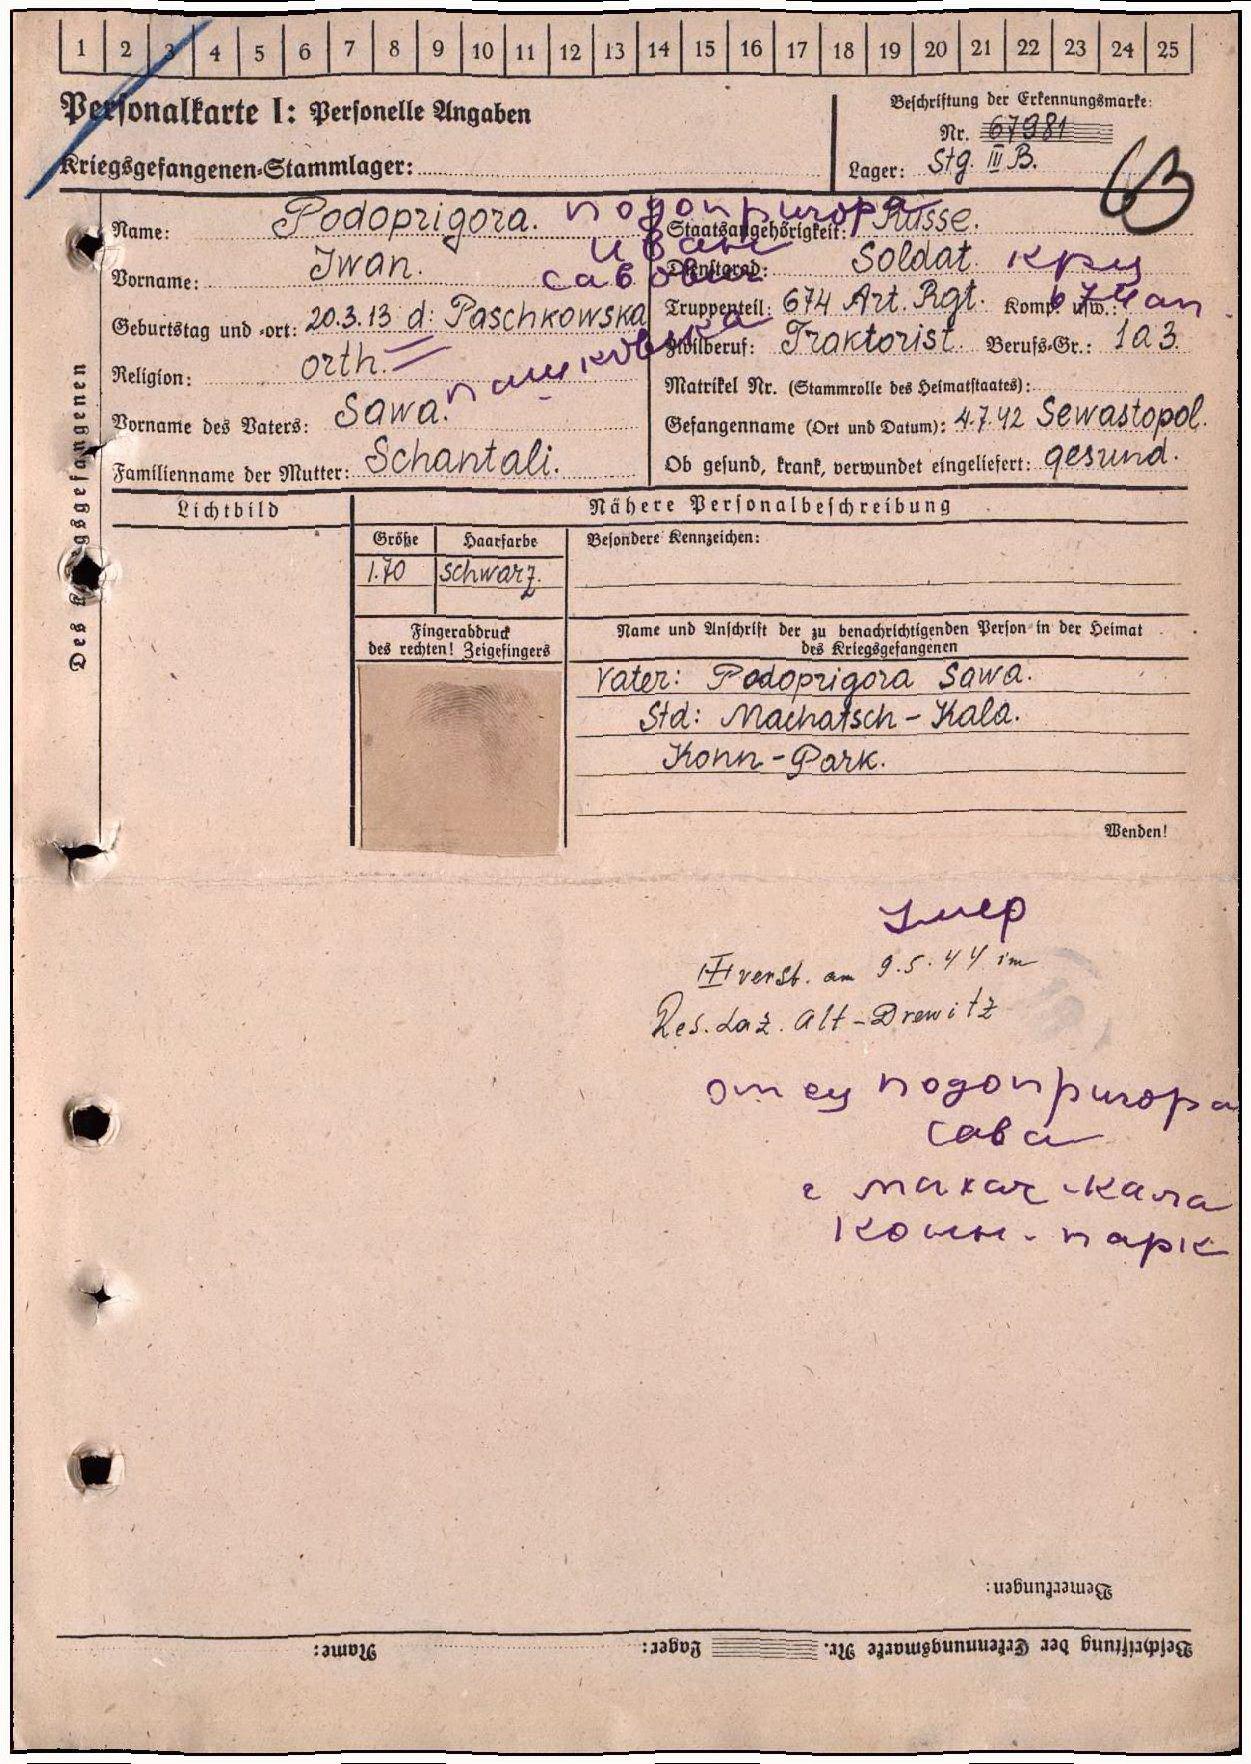 1 2 3 4 5 6 7 8 9 10 11 12 13 14 15 16 17 18 19 20 21 22 23 24 25
Personalkarte I: Personelle Angaben
Kriegsgefangenen-Stammlager:
Beschriftung der Erkennungsmarke:
Nr. 67981
Lager: Stg. III B.
Des Kriegsgefangenen
Name: Podoprigora. подопригора
Иван
Vorname: Iwan. савович
Geburtstag und -ort: 20.3.13 d: Paschkowska
Religion: orth. пашковска
Vorname des Vaters: Sawa.
Familienname der Mutter: Schantali.
Staatsangehörigkeit: Russe.
Dienstgrad: Soldat кρц
Truppenteil: 674 Art. Rgt. Komp. usw.: 674 ап
Zivilberuf: Traktorist. Berufs-Gr.: 1a3.
Matrikel Nr. (Stammrolle des Heimatstaates):
Gefangennahme (Ort und Datum): 4.7.42 Sewastopol.
Ob gesund, krank, verwundet eingeliefert: gesund.
Lichtbild
Nähere Personalbeschreibung
Größe Haarfarbe Besondere Kennzeichen:
1.70 schwarz.
Fingerabdruck
des rechten! Zeigefingers
Name und Anschrift der zu benachrichtigenden Person in der Heimat
des Kriegsgefangenen
Vater: Podoprigora Sawa.
Std: Machatsch-Kala.
Konn-Park.
Wenden!
Умер
verst. am 9.5.44 im
Res. Laz. Alt-Drewitz
отец подопригора
сава
г махач-кала
конн-парк
Bemerkungen:
Beschriftung der Erkennungsmarke Nr. Lager: Name: